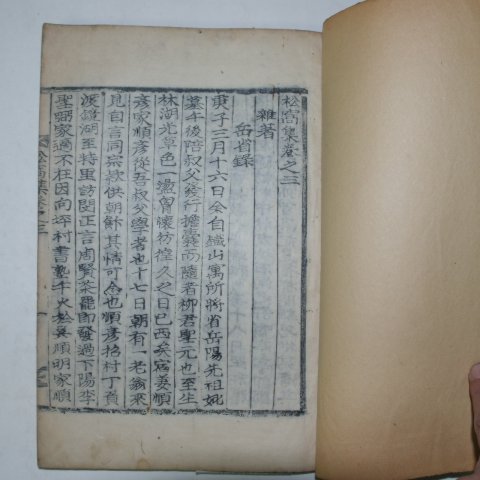 松窩集卷之三
雜著
岳省錄
庚子三月十六日余自鐵山寓所將省岳陽先祖妣
墓午後陪叔父發行擔囊而隨者柳君聖元也至坐
林湖光草色一盪胷懷彷徨久之日已西矣宿姜順
彦家順彦從吾叔父學者也十七日朝有一老翁來
見自言同宗欲供朝餉其情可念也順彦招村丁負
渡鏡湖至特里訪閔正言周賢茶罷卽發過下陽李
聖
家過不在因向坪村書塾午火
順明家順